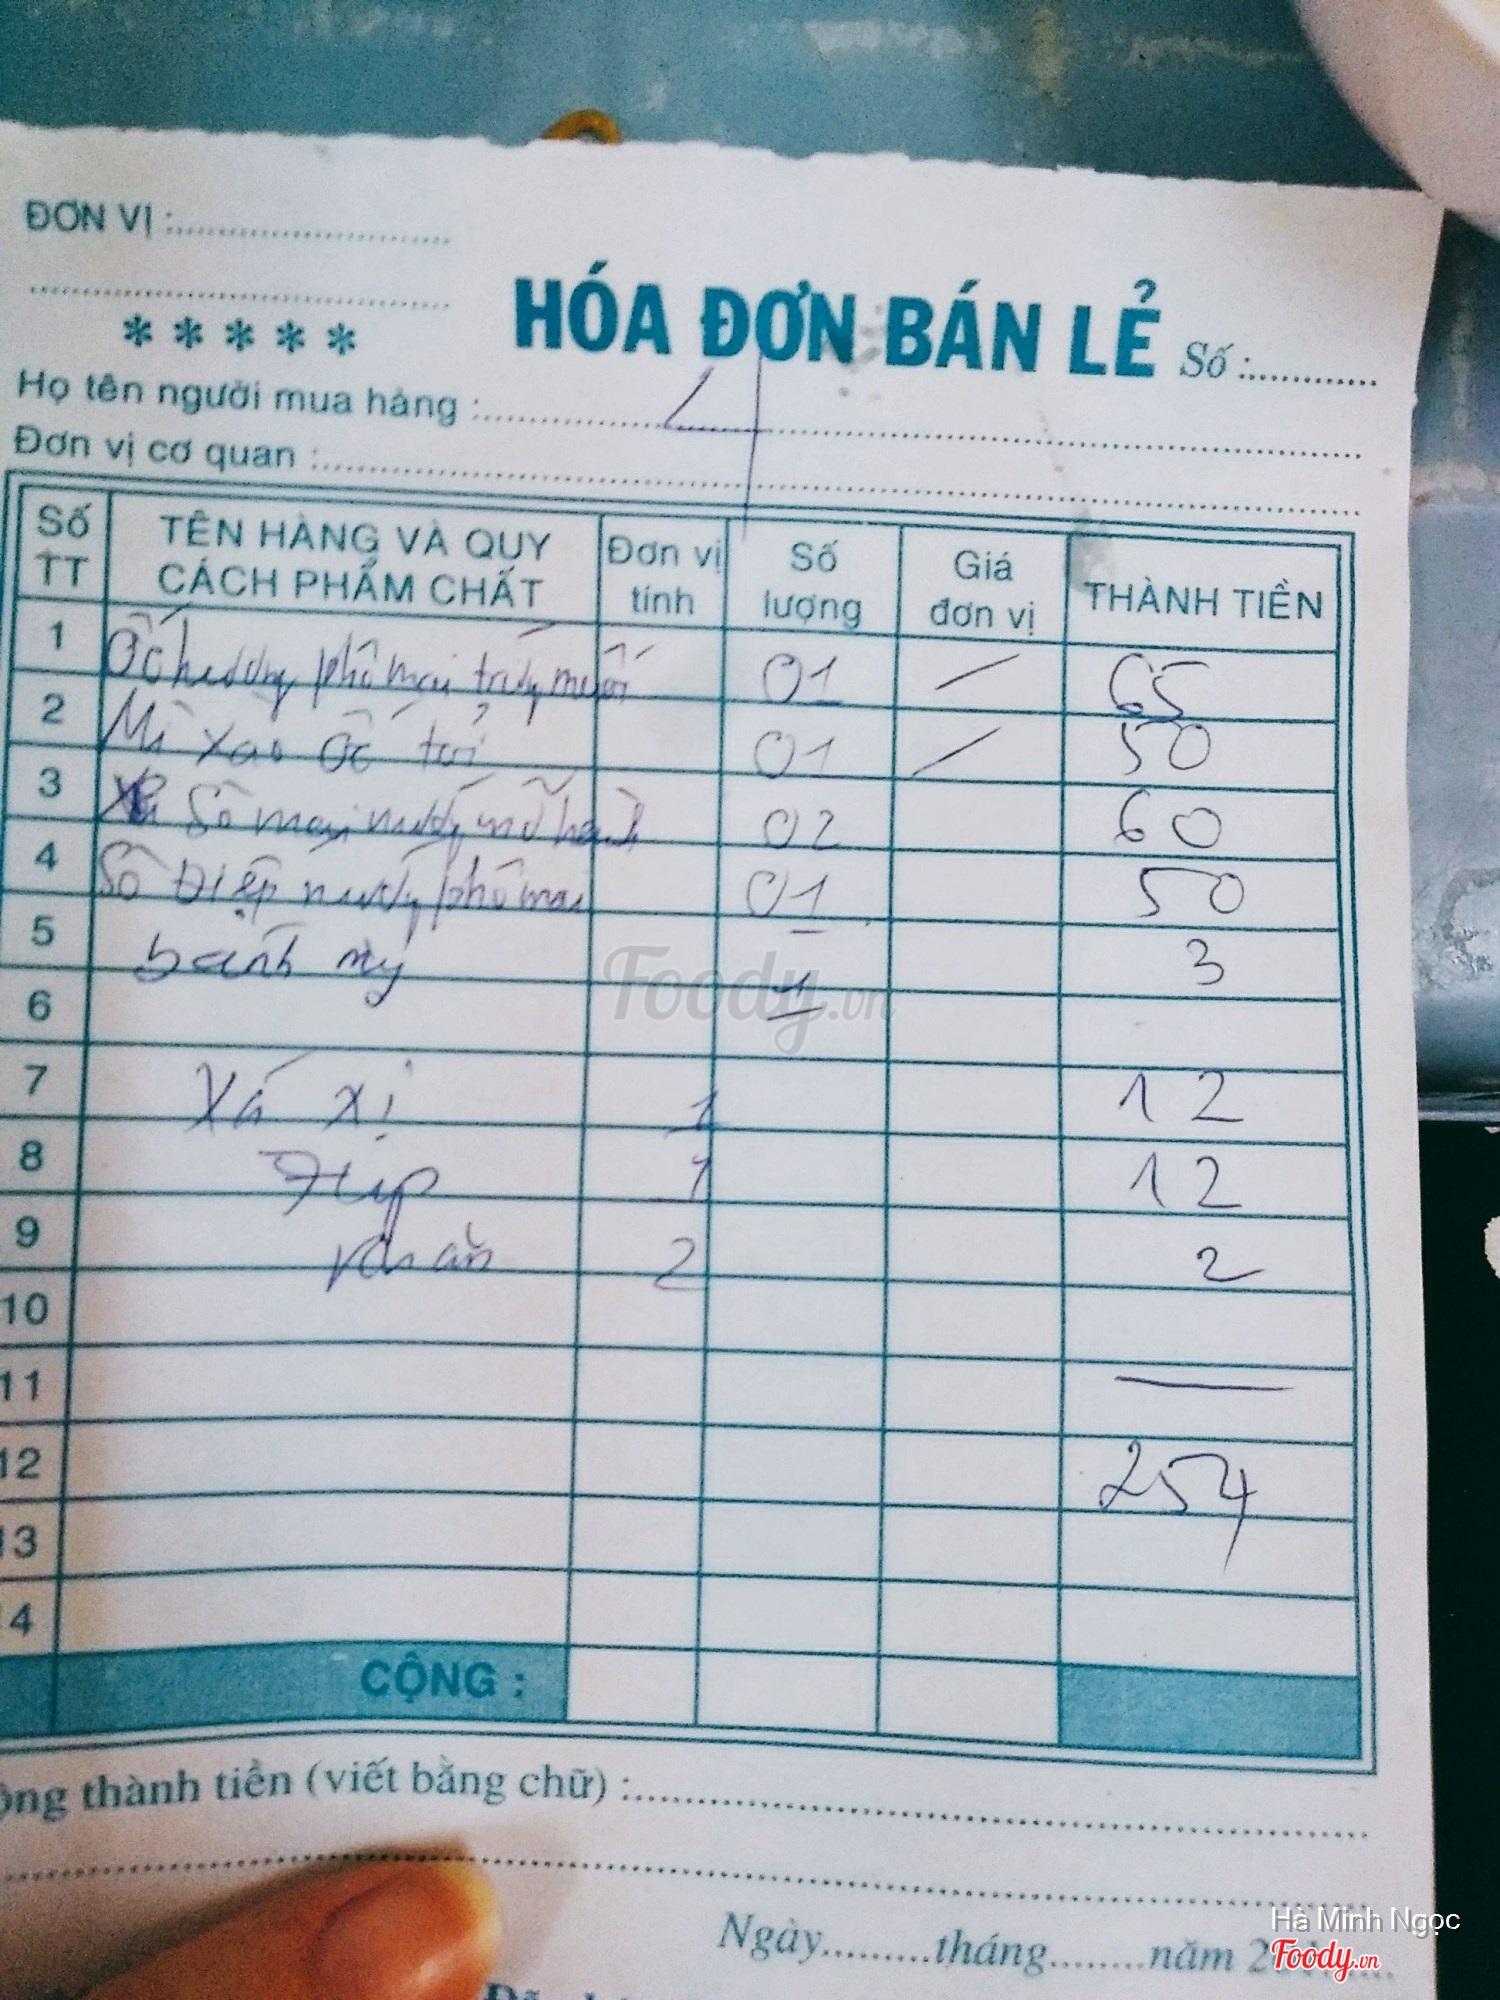 ĐƠN VỊ :
* * * * *
HÓA ĐƠN BÁN LẺ Số :
Họ tên người mua hàng : 4
Đơn vị cơ quan :
Số TT TÊN HÀNG VÀ QUY CÁCH PHẨM CHẤT Đơn vị tính Số lượng Giá đơn vị THÀNH TIỀN
1 Ốc hương phô mai trứng muối 01 / 65
2 Mì xào ốc tỏi 01 / 50
3 Sò mai nướng mỡ hành 02 60
4 Sò Điệp nướng phô mai 01 50
5 bánh mỳ 1 3
6
7 Xá xị 1 12
8 1 12
9 khăn 2 2
10
11
12 254
13
14
CỘNG :
ộng thành tiền (viết bằng chữ) :
Ngày tháng năm 2
Foody.vn
Hà Minh Ngọc
Foody.vn